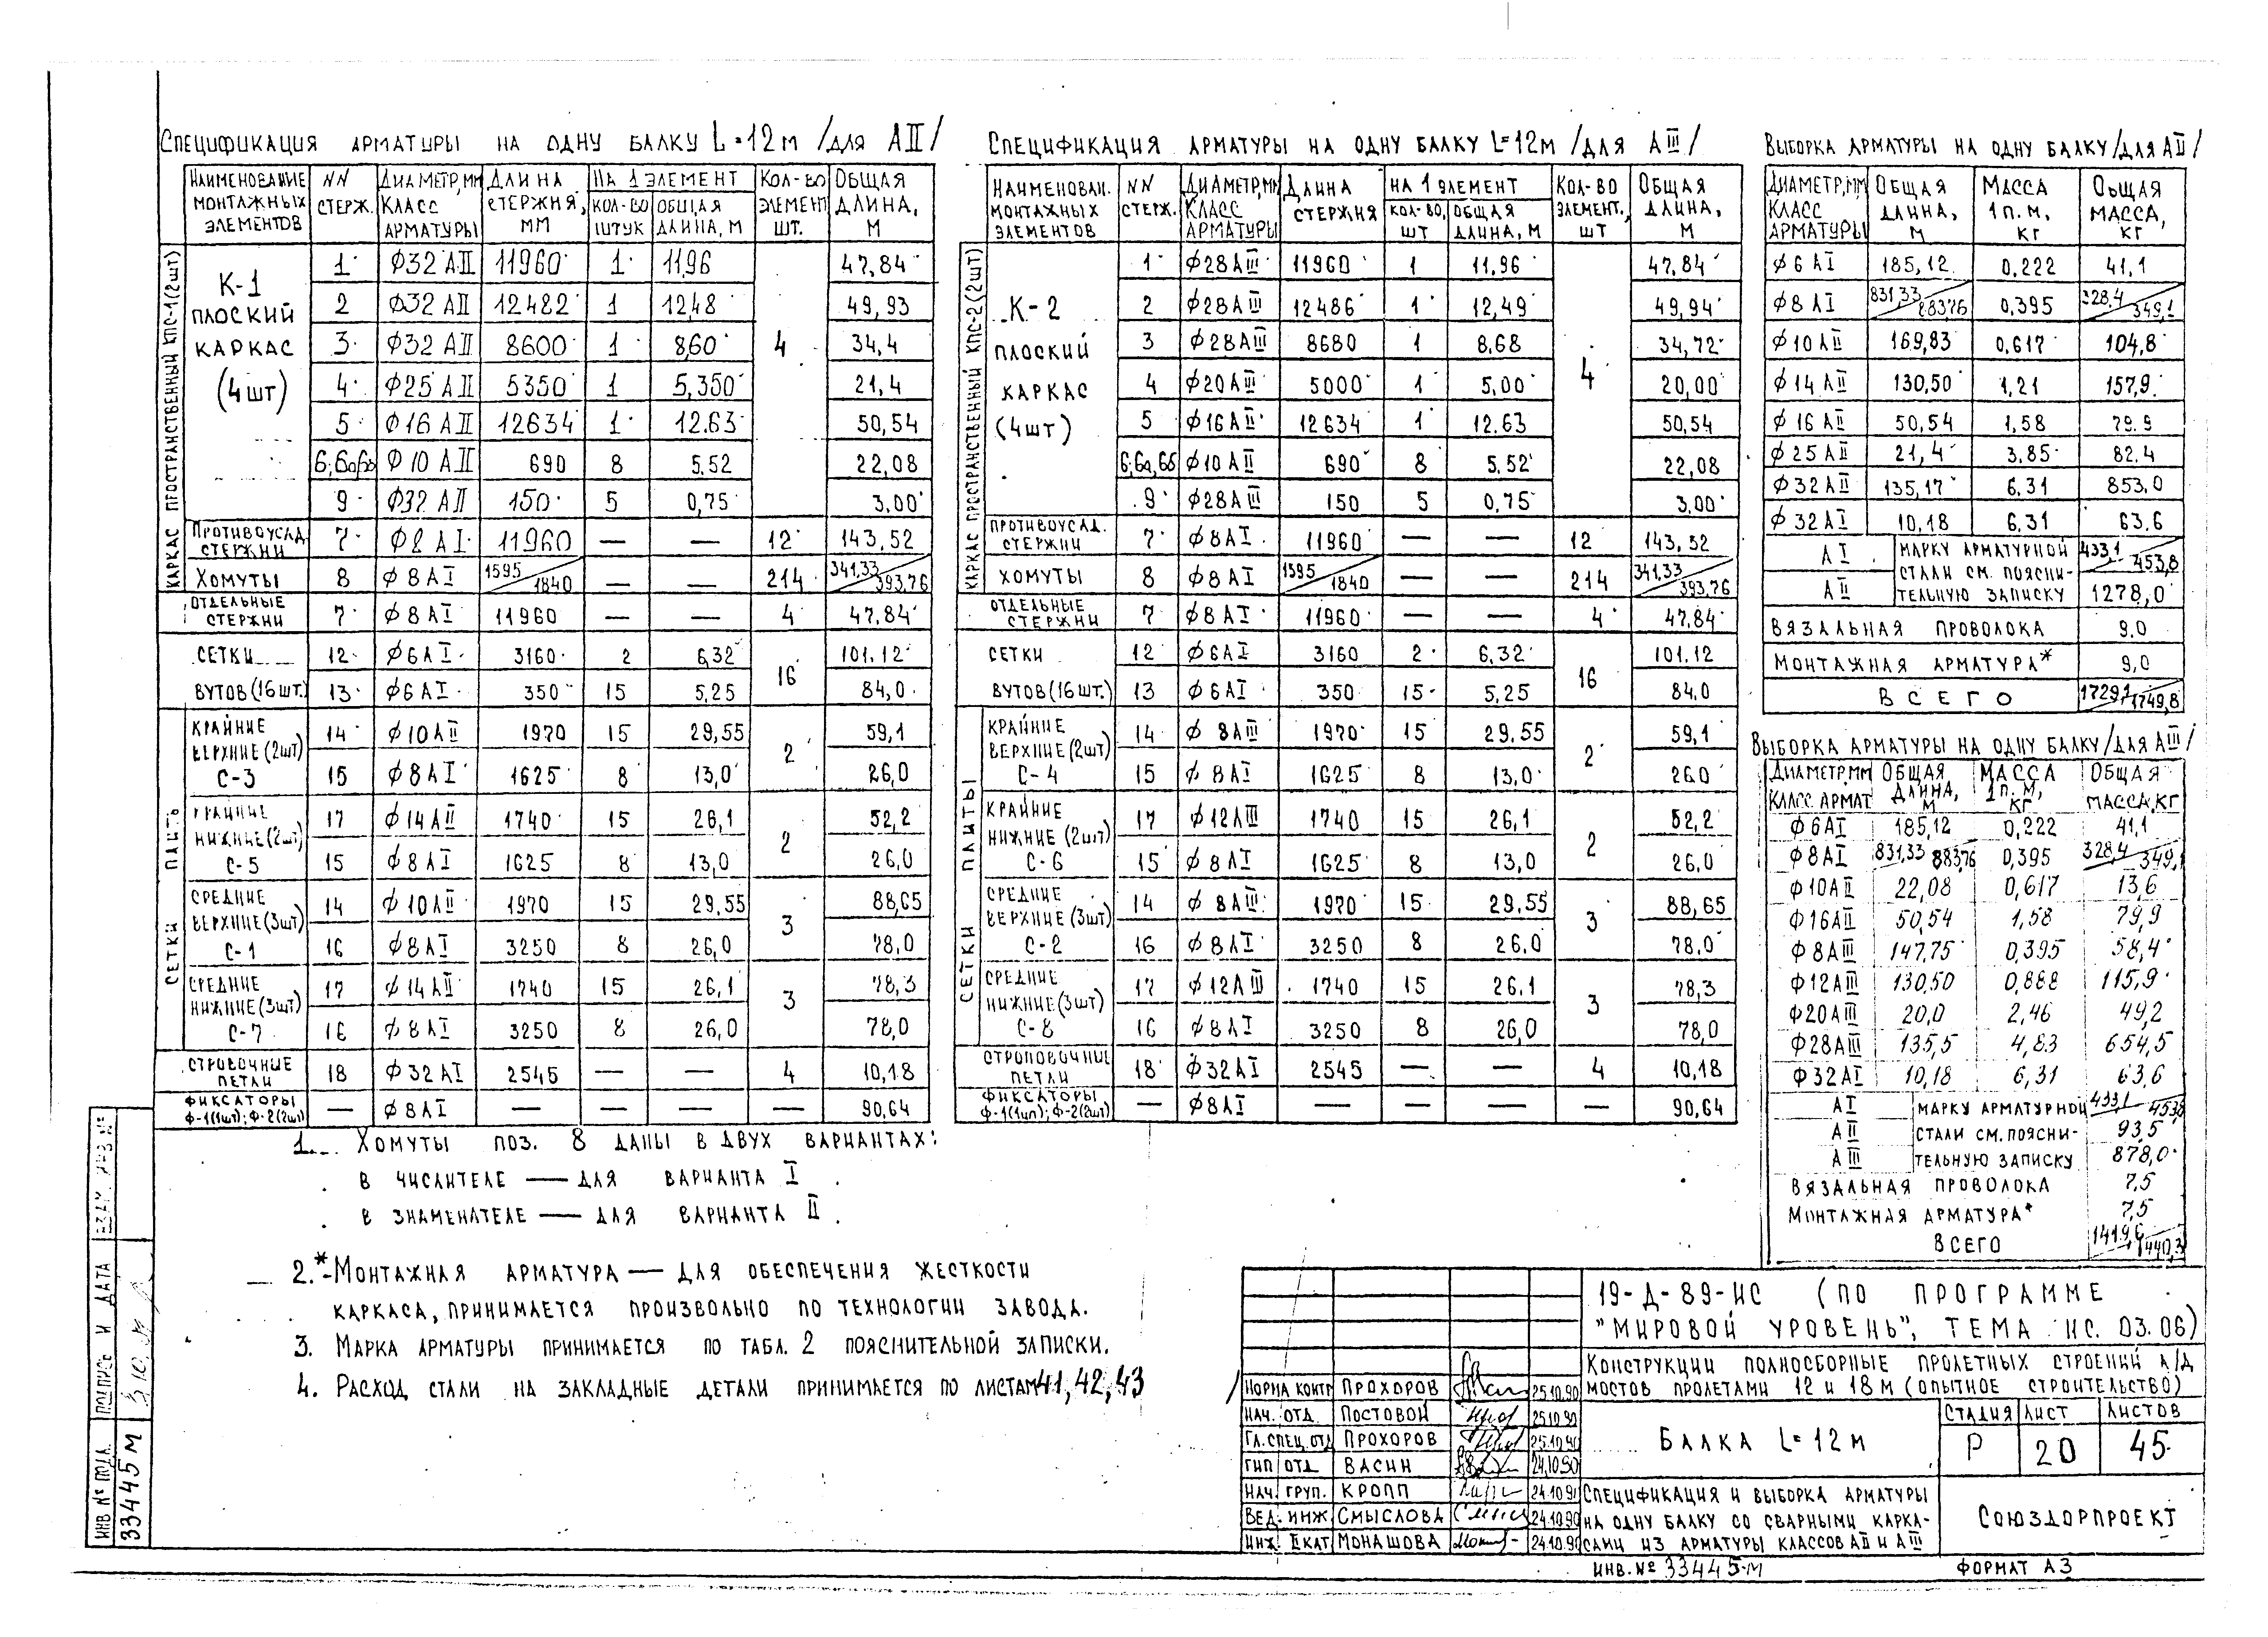 Спецификация арматуры на одну балку L=12м /для АII/
Наименование монтажных элементов | NN стерж. | Диаметр, мм класс арматуры | Длина стержня, мм | На 1 элемент кол-во штук | общая длина, м | Кол-во элемент шт. | Общая длина, м
Каркас пространственный КПС-1 (2шт)
К-1 плоский каркас (4шт)
1 | Ф32 АII | 11960 | 1 | 11,96 | 4 | 47,84
2 | Ф32 АII | 12482 | 1 | 12,48 | 49,93
3 | Ф32 АII | 8600 | 1 | 8,60 | 34,4
4 | Ф25 АII | 5350 | 1 | 5,350 | 21,4
5 | Ф16 АII | 12634 | 1 | 12.63 | 50,54
6;6а,6б | Ф10 АII | 690 | 8 | 5,52 | 22,08
9 | Ф32 АII | 150 | 5 | 0,75 | 3,00
Противоусад. стержни | 7 | Ф8 АI | 11960 | — | — | 12 | 143,52
Хомуты | 8 | Ф8 АI | 1595/1840 | — | — | 214 | 341,33/393,76
Отдельные стержни | 7 | Ф8 АI | 11960 | — | — | 4 | 47,84
Сетки вутов (16шт.)
12 | Ф6АI | 3160 | 2 | 6,32 | 16 | 101.12
13 | Ф6АI | 350 | 15 | 5,25 | 84,0
Сетки плиты
Крайние верхние (2шт) С-3
14 | Ф10АII | 1970 | 15 | 29,55 | 2 | 59,1
15 | Ф8АI | 1625 | 8 | 13,0 | 26,0
Крайние нижние (2шт) С-5
17 | Ф14АII | 1740 | 15 | 26,1 | 2 | 52,2
15 | Ф8АI | 1625 | 8 | 13,0 | 26,0
Средние верхние (3шт) С-1
14 | Ф10АII | 1970 | 15 | 29,55 | 3 | 88,65
16 | Ф8АI | 3250 | 8 | 26,0 | 78,0
Средние нижние (3шт) С-7
17 | Ф14АII | 1740 | 15 | 26,1 | 3 | 78,3
16 | Ф8АI | 3250 | 8 | 26,0 | 78,0
Строповочные петли | 18 | Ф32АI | 2545 | — | — | 4 | 10,18
Фиксаторы Ф-1(1шт); Ф-2(2шт) | — | Ф8АI | — | — | — | — | 90,64
Спецификация арматуры на одну балку L=12м /для АIII/
Наименован. монтажных элементов | NN стерж. | Диаметр, мм класс арматуры | Длина стержня | На 1 элемент кол-во, шт | общая длина, м | Кол-во элемент., шт | Общая длина, м
Каркас пространственный КПС-2 (2шт)
К-2 плоский каркас (4шт)
1 | Ф28АIII | 11960 | 1 | 11,96 | 4 | 47,84
2 | Ф28АIII | 12486 | 1 | 12,49 | 49,94
3 | Ф28АIII | 8680 | 1 | 8,68 | 34,72
4 | Ф20АIII | 5000 | 1 | 5,00 | 20,00
5 | Ф16АII | 12634 | 1 | 12.63 | 50,54
6;6а,6б | Ф10АII | 690 | 8 | 5,52 | 22,08
9 | Ф28АIII | 150 | 5 | 0,75 | 3,00
Противоусад. стержни | 7 | Ф8АI | 11960 | — | — | 12 | 143,52
Хомуты | 8 | Ф8АI | 1595/1840 | — | — | 214 | 341,33/393,76
Отдельные стержни | 7 | Ф8АI | 11960 | — | — | 4 | 47,84
Сетки вутов (16шт.)
12 | Ф6АI | 3160 | 2 | 6,32 | 16 | 101.12
13 | Ф6АI | 350 | 15 | 5,25 | 84,0
Сетки плиты
Крайние верхние (2шт) С-4
14 | Ф 8АIII | 1970 | 15 | 29.55 | 2 | 59,1
15 | Ф 8АI | 1625 | 8 | 13,0 | 26,0
Крайние нижние (2шт) С-6
17 | Ф12АIII | 1740 | 15 | 26,1 | 2 | 52,2
15 | Ф8АI | 1625 | 8 | 13,0 | 26,0
Средние верхние (3шт) С-2
14 | Ф 8АIII | 1970 | 15 | 29.55 | 3 | 88,65
16 | Ф8АI | 3250 | 8 | 26.0 | 78,0
Средние нижние (3шт) С-8
17 | Ф12АIII | 1740 | 15 | 26.1 | 3 | 78,3
16 | Ф8АI | 3250 | 8 | 26,0 | 78,0
Строповочные петли | 18 | Ф32АI | 2545 | — | — | 4 | 10,18
Фиксаторы Ф-1(1шт); Ф-2(2шт) | — | Ф8АI | — | — | — | — | 90,64
Выборка арматуры на одну балку /для АII/
Диаметр, мм класс арматуры | Общая длина, м | Масса 1п.м, кг | Общая масса, кг
Ф6 АI | 185,12 | 0,222 | 41,1
Ф8 АI | 831,33/883,76 | 0,395 | 328,4/349,1
Ф10 АII | 169,83 | 0,617 | 104,8
Ф14 АII | 130,50 | 1,21 | 157,9
Ф16 АII | 50,54 | 1,58 | 79.9
Ф25 АII | 21,4 | 3,85 | 82.4
Ф32АII | 135,17 | 6,31 | 853,0
Ф32АI | 10,18 | 6,31 | 63.6
АI | марку арматурной стали см. поясни- | 433,1/453,8
АII | тельную записку | 1278,0
Вязальная проволока | 9.0
Монтажная арматура* | 9,0
Всего | 1729,1/1749,8
Выборка арматуры на одну балку /для АIII/
Диаметр, мм класс армат | Общая длина, м | Масса 1п.м, кг | Общая масса, кг
Ф6АI | 185,12 | 0,222 | 41,1
Ф8АI | 831,33/883,76 | 0,395 | 328,4/349,1
Ф10АII | 22,08 | 0,617 | 13,6
Ф16АII | 50,54 | 1,58 | 79,9
Ф8АIII | 147,75 | 0,395 | 58,4
Ф12АIII | 130,50 | 0,888 | 115,9
Ф20АIII | 20,0 | 2,46 | 49,2
Ф28АIII | 135,5 | 4,83 | 654,5
Ф32АI | 10,18 | 6,31 | 63,6
АI | марку арматурной | 433,1/453,8
АII | стали см. поясни- | 93,5
АIII | тельную записку | 878,0
Вязальная проволока | 7,5
Монтажная арматура* | 7,5
Всего | 1419,6/1440,3
1. Хомуты поз. 8 даны в двух вариантах:
в числителе — для варианта I
в знаменателе — для варианта II.
2.*-Монтажная арматура — для обеспечения жесткости
каркаса, принимается произвольно по технологии завода.
3. Марка арматуры принимается по табл. 2 пояснительной записки.
4. Расход стали на закладные детали принимается по листам 41, 42, 43
19-Д-89-ИС (по программе
"Мировой уровень", тема ИС. 03.06)
Конструкции полносборные пролетных строений а/д
мостов пролетами 12 и 18м (опытное строительство)
Норма контр | Прохоров | 25.10.90
Нач. отд | Постовой | 25.10.90
Гл. спец. отд | Прохоров | 25.10.90
ГИП отд | Васин | 24.10.90
Нач. груп. | Кропп | 24.10.90
Вед. инж | Смыслова | 24.10.90
Инж. II кат | Монашова | 24.10.90
Балка L=12м
Стадия | Лист | Листов
Р | 20 | 45
Спецификация и выборка арматуры
на одну балку со сварными карка-
сами из арматуры классов АII и АIII
Союздорпроект
Инв. № 33445-М
Формат А3
Инв. № подл. | Подпись и дата | Взам. инв №
33445м